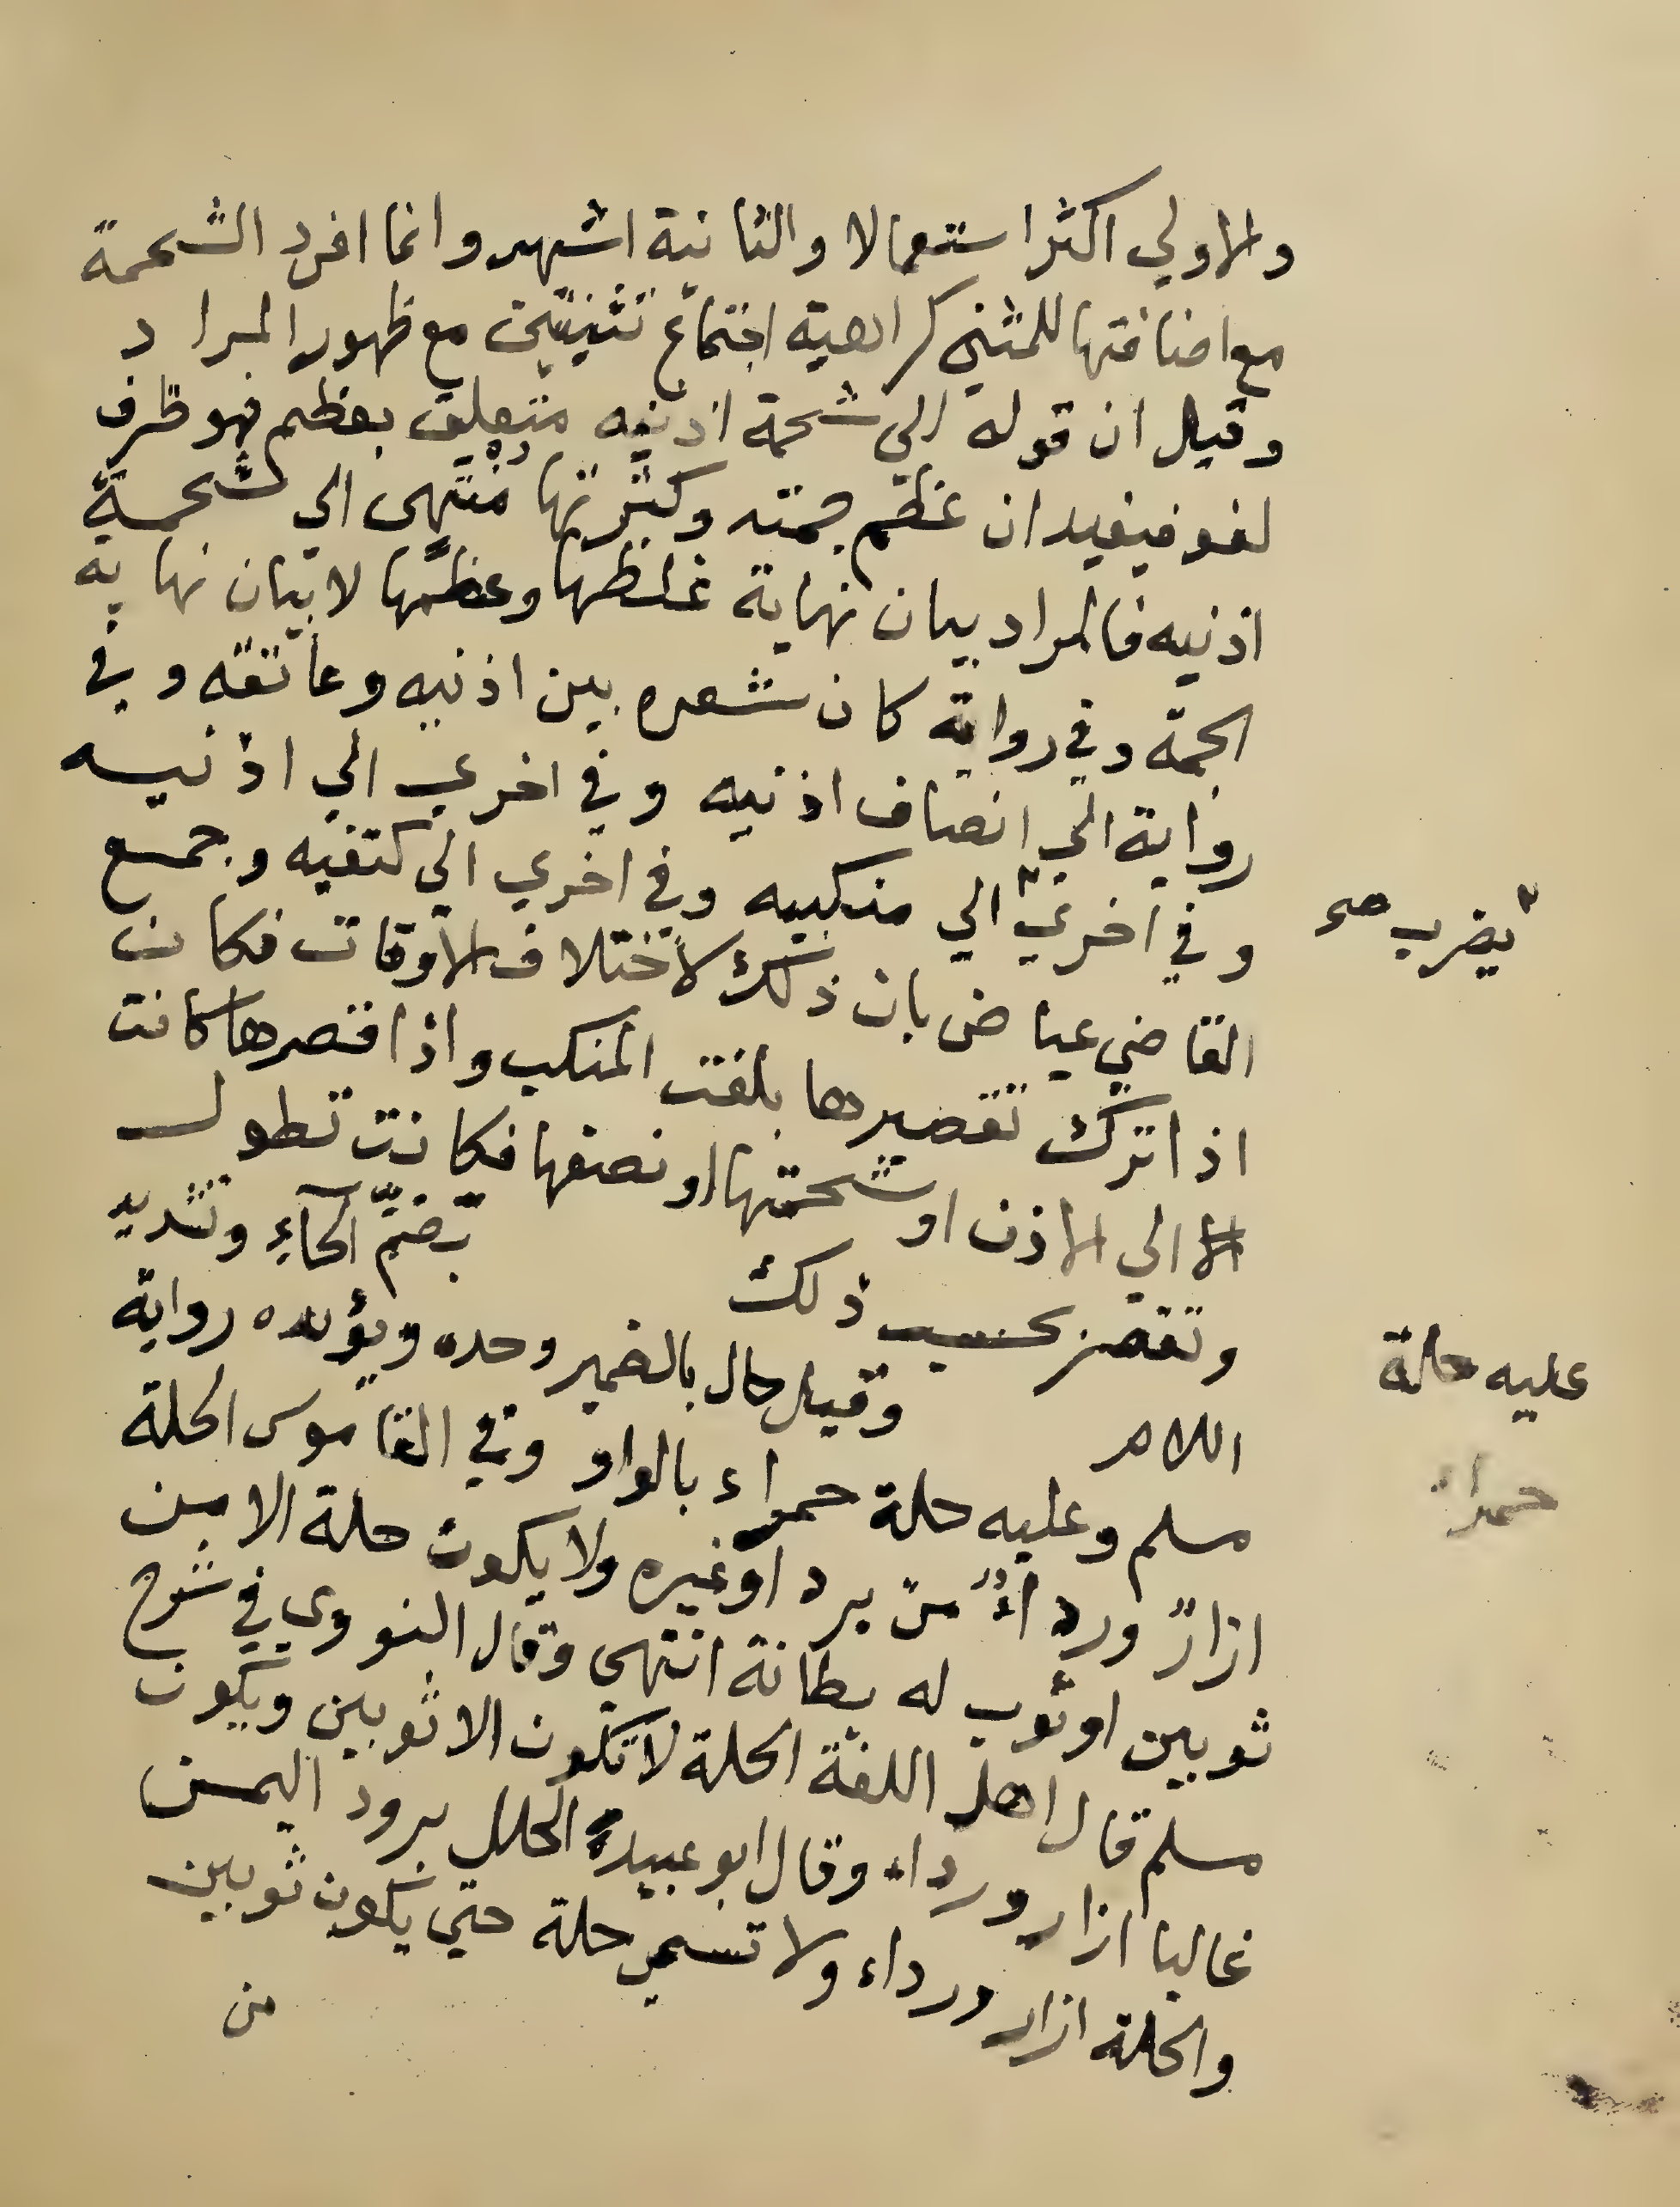 والاولي اكثر استعمالا والثانية اشهر وانما افرد الشحمة
مع اضافتها للمثني كراهية اجتماع تثنيتين مع ظهور المراد
وقيل ان قوله الي شحمة اذنيه متعلق بعظم فهو ظرف
لغو فيفيد ان عظم جمته وكثرتها منتهى الي شحمة
اذنيه فالمراد بيان نهاية غلظها وعظمها لا بيان نهاية
الجمة وفي رواية كان شعره بين اذنيه وعاتقه وفي
رواية الي انصاف اذنيه وفي اخري الي اذنيه
وفي اخري الي منكبيه وفي اخري الي كتفيه وجمع
يضرب صح
القاضي عياض بان ذلك لاختلاف الاوقات فكان
اذا ترك تقصيرها بلغت المنكب واذا قصرها كانت
الي الاذن او شحمتها او نصفها فكانت تطول
وتقصر بحسب ذلك بضم الحاء وتشديد
عليه حلة
اللام وقيل حال بالضمير وحده ويؤيده رواية
حمراء
مسلم وعليه حلة حمراء بالواو وفي القاموس الحلة
ازارٌ ورداءٌ من برد او غيره ولا يكون حلة الا من
ثوبين او ثوب له بطانة انتهى وقال النووي في شرح
مسلم قال اهل اللغة الحلة لا تكون الا ثوبين ويكون
غالبا ازار ورداء وقال ابو عبيد الحلل برود اليمن
والحلة ازار ورداء ولا تسمي حلة حتي يكون ثوبين
من